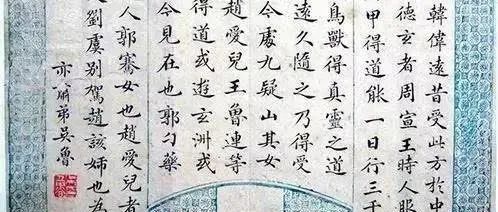 韓偉遠昔受此方於中
德玄者周宣王時人服
甲得道能一日行三千
鳥獸得真靈之道
遠久隨之乃得受
今處九疑山其女
趙愛兒王魯連等
得道或遊玄洲或
今見在也郭勺藥
人郭騫女也趙愛兒者
劉虞別駕趙該姊也為
弟吳魯